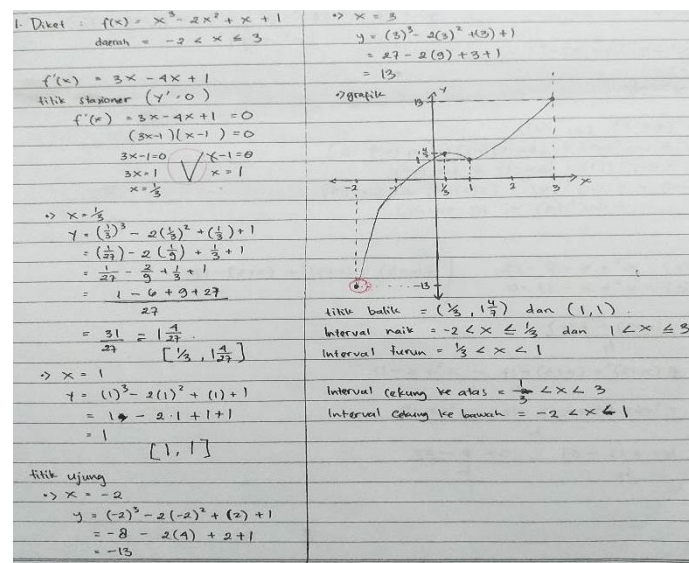 1. Diket : f(x) = x³ - 2x² + x + 1
daerah = -2 < x ≤ 3
f'(x) = 3x - 4x + 1
titik stasioner (y' = 0)
f'(x) = 3x - 4x + 1 = 0
(3x-1)(x-1) = 0
3x-1=0 V x-1=0
3x=1 x = 1
x = 1/3
•> x = 1/3
y = (1/3)³ - 2(1/3)² + (1/3) + 1
= (1/27) - 2(1/9) + 1/3 + 1
= 1/27 - 2/9 + 1/3 + 1
= 1 - 6 + 9 + 27
27
= 31/27 = 1 4/27
[1/3, 1 4/27]
•> x = 1
y = (1)³ - 2(1)² + (1) + 1
= 1 - 2·1 + 1 + 1
= 1
[1, 1]
titik ujung
•> x = -2
y = (-2)³ - 2(-2)² + (2) + 1
= -8 - 2(4) + 2 + 1
= -13
•> x = 3
y = (3)³ - 2(3)² + (3) + 1
= 27 - 2(9) + 3 + 1
= 13
•> grafik
y
13
1
-2 -1 1/3 1 2 3 x
-13
titik balik = (1/3, 1 4/7) dan (1, 1).
Interval naik = -2 < x ≤ 1/3 dan 1 < x ≤ 3
Interval turun = 1/3 < x < 1
Interval cekung ke atas = 1/3 < x < 3
Interval cekung ke bawah = -2 < x < 1